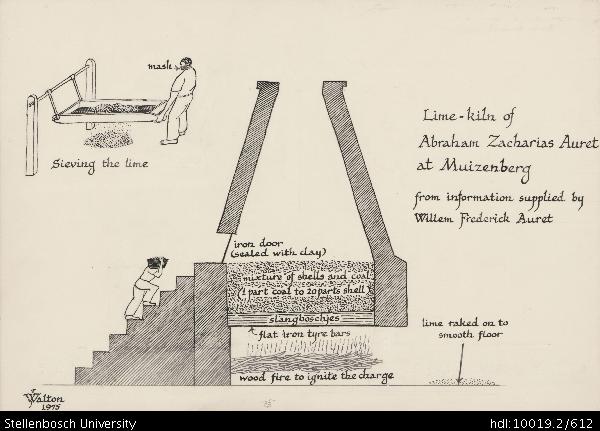 mask
Sieving the lime
Lime-kiln of
Abraham Zacharias Auret
at Muizenberg
from information supplied by
Willem Frederick Auret
iron door
(sealed with clay)
mixture of shells and coal
(1 part coal to 20 parts shell)
slangboschjes
flat iron tyre bars
wood fire to ignite the charge
lime raked on to
smooth floor
J Walton
1975
Stellenbosch University
hdl:10019.2/612